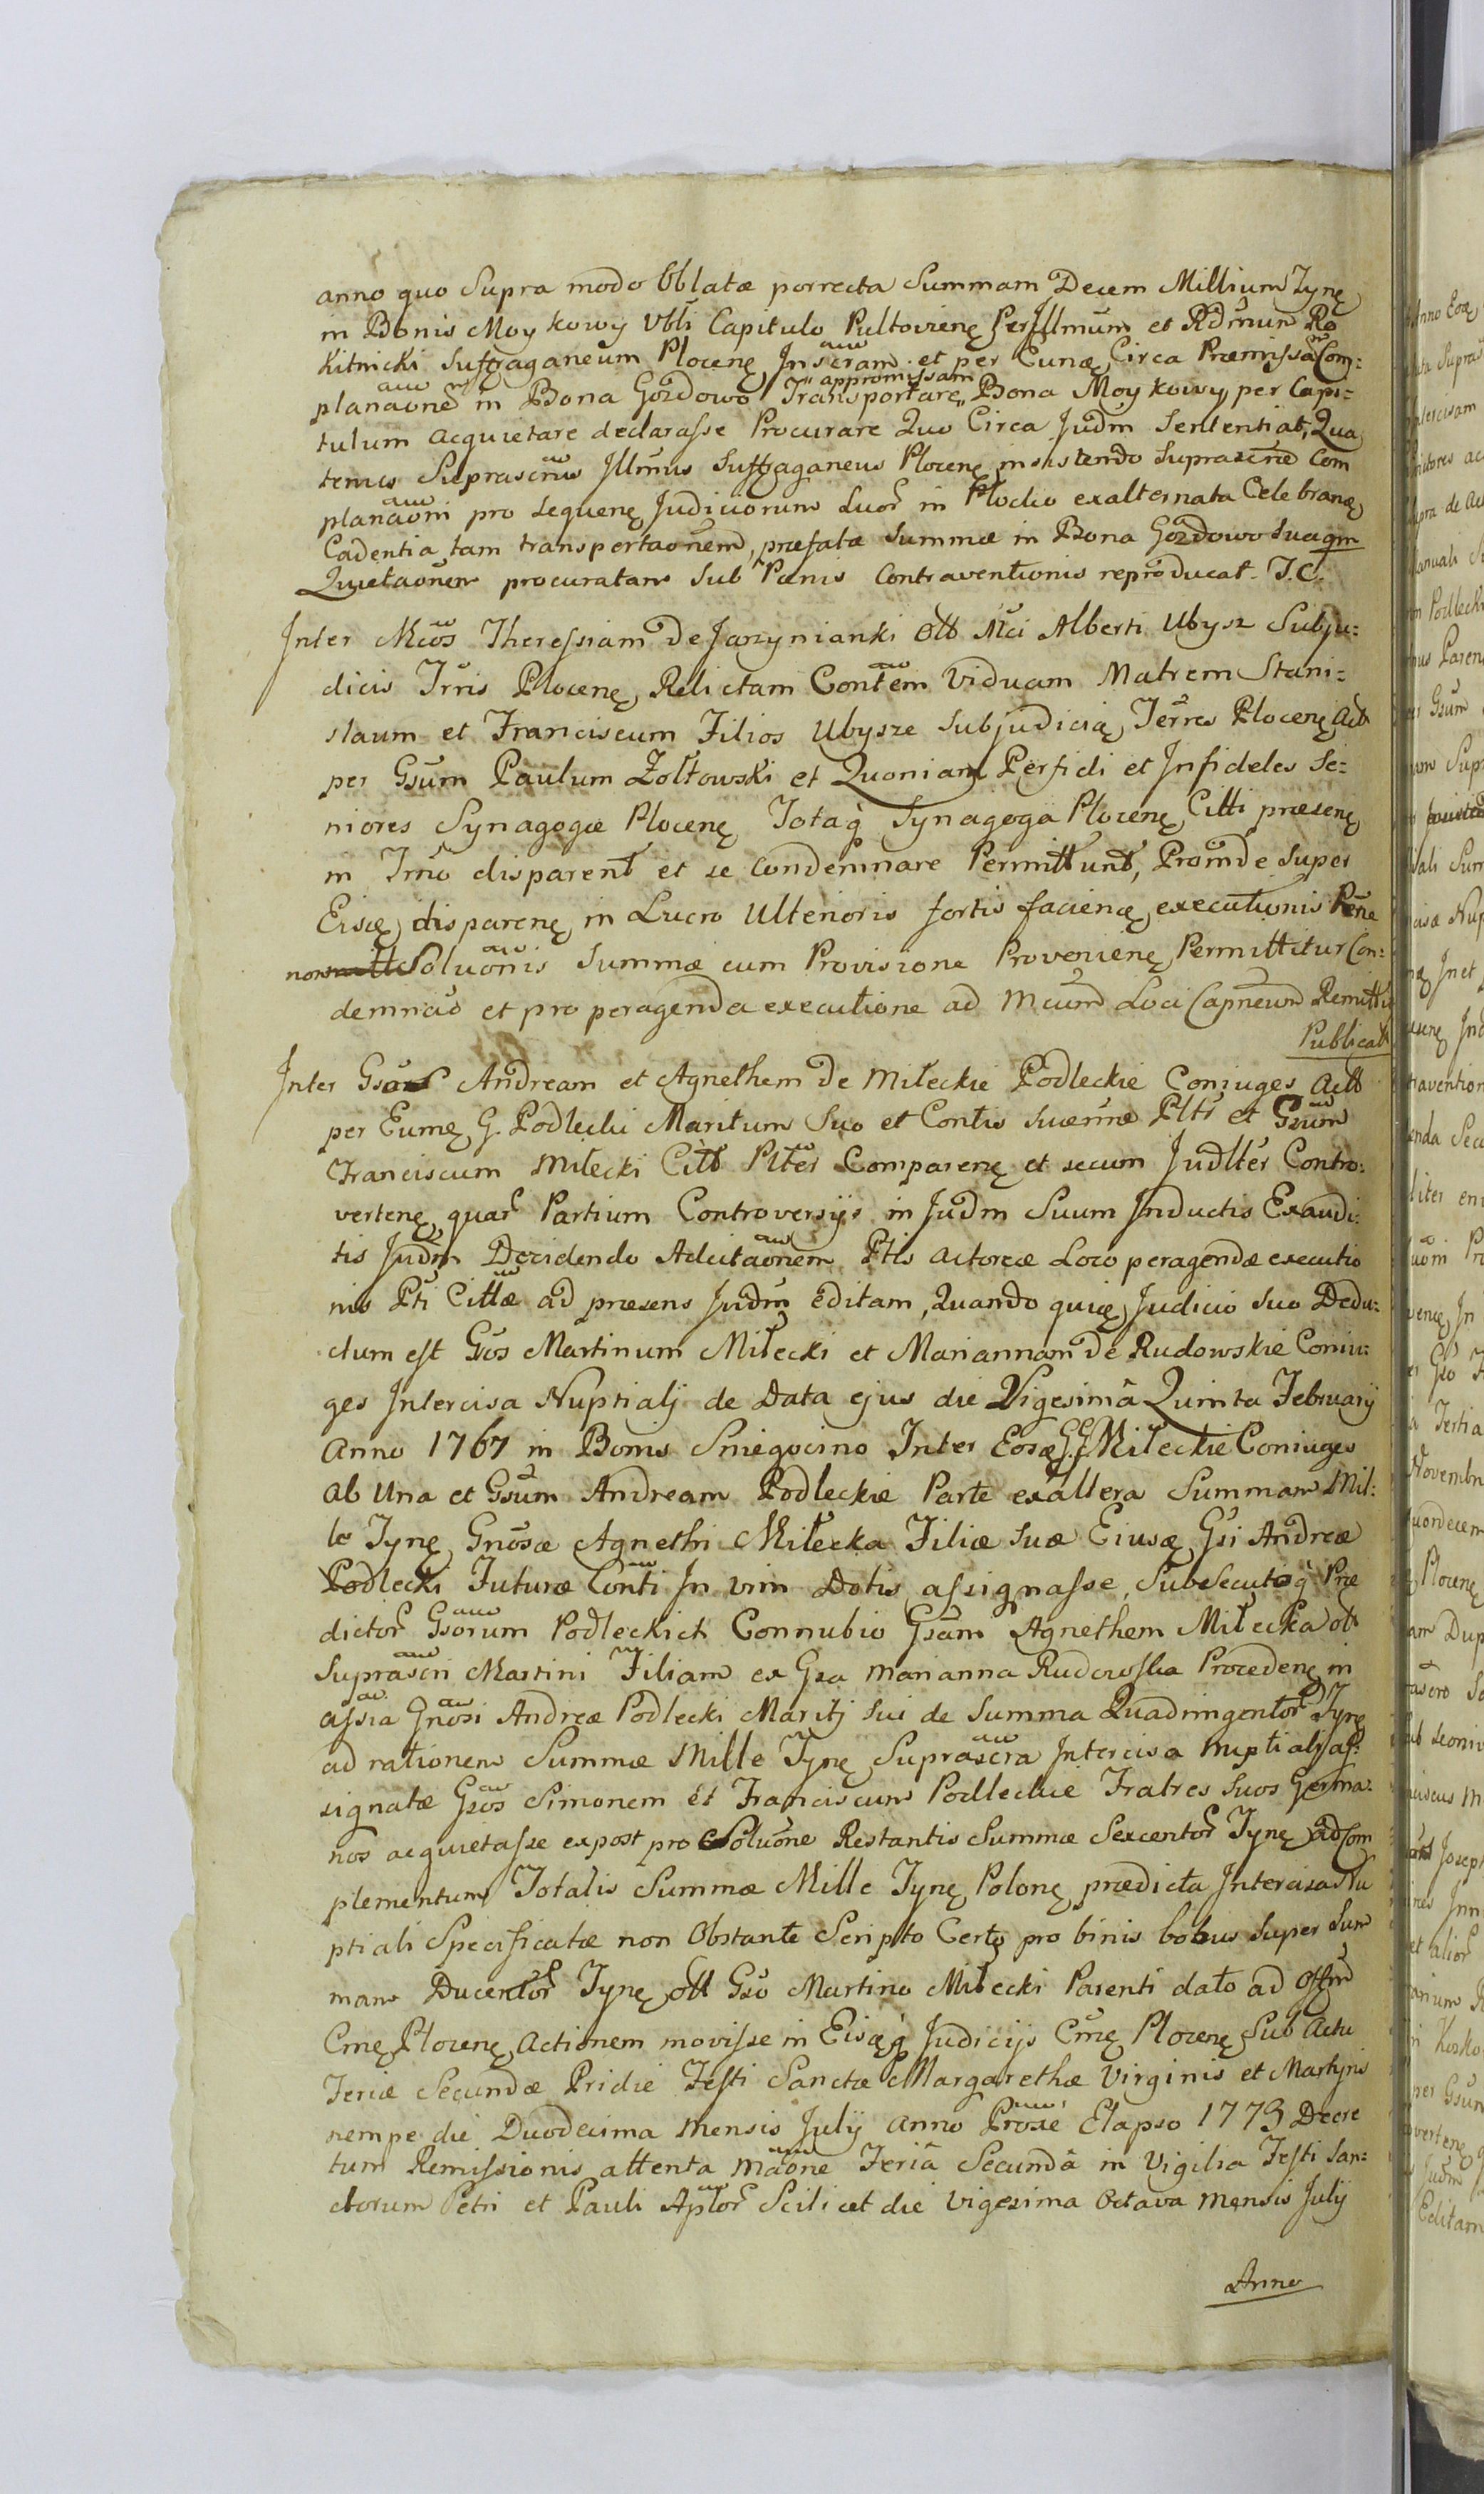 anno quo Supra modo Oblatæ porrecta Summam Decem Millium Tyng
in Bonis Moykowy Vbli Capitulo Pultovieng Perillmum et Rdmum Ro
kitnicki Suffraganeum Ploceng Inscram et per Eung Circa Præmissa Com:
planaone in Bona Gozdowo Transportare appromissam Bona Moykowy per Capi:
tulum acquietare declarasse Procurare Quo Circa Judm Sententiat, Qua
tenus Suprascrus Illmus Suffraganeus Ploceng insistendo Suprascræ Com
planaoni pro sequeng Judiciorum Suor in Plocko exalternata Celebrang
Cadentia tam transportaonem, præfatæ Summæ in Bona Gozdowo Suaqm
Quietaonem procuratam Sub Pænis Contraventionis reproducat. I.C.
Inter Mcos Theressiam De Jarzynianki Olb Mci Alberti Ubysz Subju:
dicis Trris Ploceng Relictam Contem Viduam Matrem Stani:
slaum et Franciscum Filios Ubysze Subjudicig Terres Ploceng Act
per Gsum Paulum Zołtowski et Quoniam Perfidi et Infideles Se:
niores Synagogæ Ploceng Totaq Synagoga Ploceng Citti præseng
in Trno disparent et se Condemnare Permittunt, Proinde Super
Eisg dispareng in Lucro Ulterioris fortis facieng executionis Pene
non Soluonis Summæ cum Provisione Provenieng Permittitur Con:
demnao et pro peragenda executione ad Mcum Loci Capneum Remittit
Publicat
Inter Gsos Andream et Agnethem de Miłeckie Podleckie Coniuges Actt
per Eumg G. Podlecki Maritum Suo et Contis Suæ nne Pltr et Gsum
Franciscum Miłecki Citt Plter Compareng et secum Judlter Contro:
verteng quar Partium Controversijs in Judm Suum Inductis Exaudi:
tis Judm Decidendo Adcitaonem Ptis actoreæ Loco peragendæ executio
nis Pti Cittæ ad præsens Judm editam, Quando quig Judicio suo Dedu:
ctum est Gsos Martinum Miłecki et Mariannam de Rudowskie Coniu:
ges Intercisa Nuptialj de Data ejus die Vigesimâ Quinta Februarij
Anno 1767 in Bonis Sniegocino Inter Eosg GG Miłeckie Coniuges
ab Una et Gsum Andream Podleckie Parte exaltera Summam Mil:
le Tyng Gnosæ Agnethi Miłecka Filiæ Suæ Eiusg Gsi Andreæ
Podlecki Futuræ Conti In vim Dotis assignasse, Subsecutoq Præ
dictor Gsorum Podleckich Connubio Gsam Agnethem Miłecka olb
Suprascri Martini Filiam ex Gsa Marianna Rudowska Procedeng in
assia Gnosi Andreæ Podlecki Maritj sui de Summa Quadringentor Tyng
ad rationem Summæ Mille Tyng Suprascra Intercisa Nuptialj as:
signatæ Gsos Simonem et Franciscum Podleckie Fratres Suos Germa:
nos acquietasse expost pro Soluone Restantis Summæ Sexcentor Tyng ad Com
plementum Totalis Summæ Mille Tyng Polong prædicta Intercisa Nu
ptiali Specificatæ non Obstante Scripto Certo pro binis bobus Super Sum
mam Ducentor Tyng olt Gso Martino Miłecki Parenti dato ad Offm
Cmg Ploceng Actionem movisse in Eisgq Judicijs Cmg Ploceng Sub Actu
Feriæ Secundæ Pridie Festi Sanctæ Margarethæ Virginis et Martyris
nempe die Duodecima Mensis Julij anno Proxe Elapso 1773 Decre
tum Remissionis attenta Maone Feriâ Secundâ in Vigilia Festi San:
ctorum Petri et Pauli Aplor Scilicet die Vigesima Octava Mensis Julij
Anno